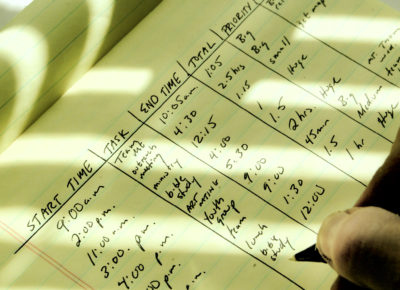 START TIME
9:00 a.m
2:00 p.m.
11:00 a.m.
3:00 p.m.
4:00 p.m.
TASK
Team
outreach
meeting
ministry
bible
study
youth
group
team
lunch
bible
study
END TIME
10:05am
4:30
12:15
4:00
5:30
9:00
9:00
1:30
12:00
TOTAL
1:05
2.5 hrs
1.15
1
1.5
2 hrs.
45min
1.5
1 hr
PRIORITY
Big
Big
small
Huge
Huge
Big
Medium
Huge